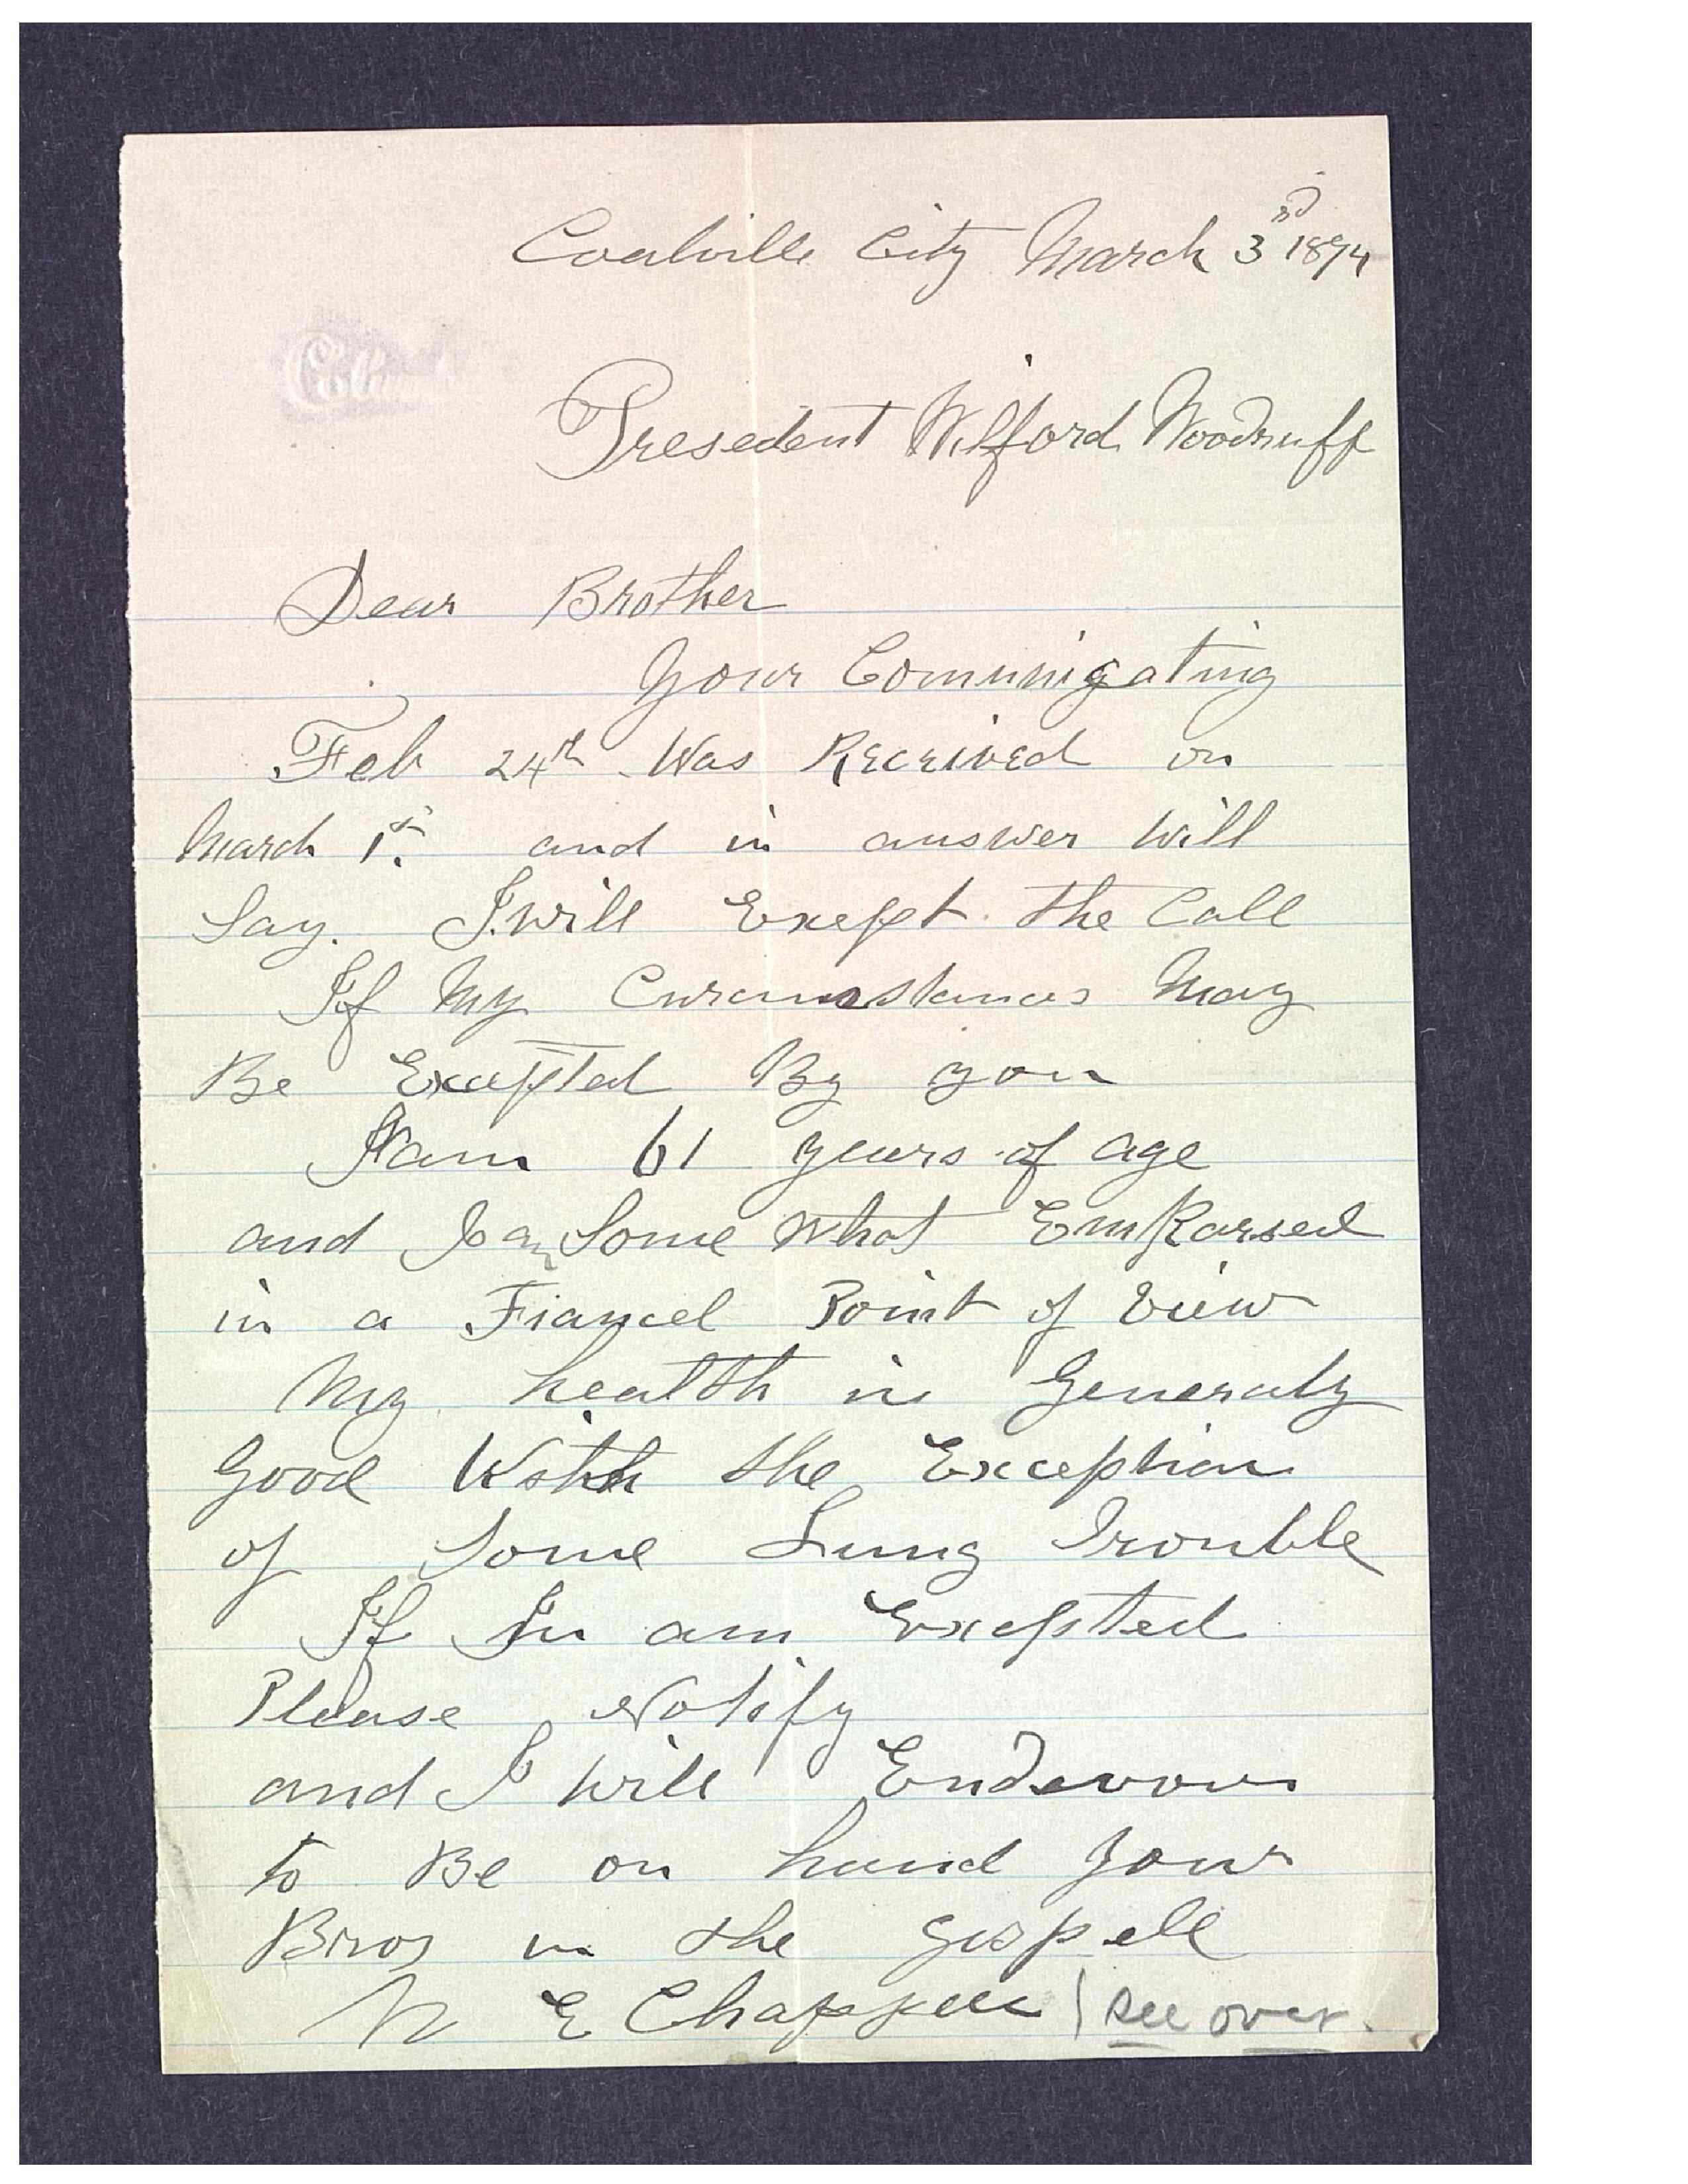 Coalville City March 3rd 1894
Presedent Wilford Woodruff
Dear Brother
Your Comunigating
Feb 24th Was Received on
March 1st and in answer Will
Say. I will Exept the Call
If My Curcumstances May
Be Excepted By you
I am 61 years of age
and I am Some What EmBarsed
in a Fiancel Point of View
My health is Generaly
Good With the Exception
of Some Lung Trouble
If I am Excepted
Please Notify
and I Will Endevour
to Be on hand Your
Bros in the gospell
E Chappell see over